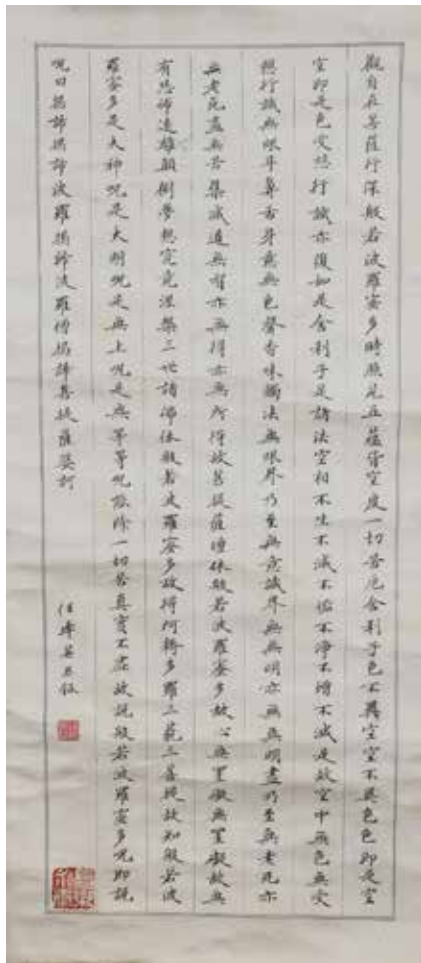 觀自在菩薩行深般若波羅蜜多時照見五蘊皆空度一切苦厄舍利子色不異空空不異色色即是空
空即是色受想行識亦復如是舍利子是諸法空相不生不滅不垢不淨不增不減是故空中無色無受
想行識無眼耳鼻舌身意無色聲香味觸法無眼界乃至無意識界無無明亦無無明盡乃至無老死亦
無老死盡無苦集滅道無智亦無得亦無所得故菩提薩埵依般若波羅蜜多故心無罣礙無罣礙故無
有恐怖遠離顛倒夢想究竟涅槃三世諸佛依般若波羅蜜多故得阿耨多羅三藐三菩提故知般若波
羅蜜多是大神咒是大明咒是無上咒是無等等咒能除一切苦真實不虛故說般若波羅蜜多咒即說
咒曰揭諦揭諦波羅揭諦波羅僧揭諦菩提薩婆訶